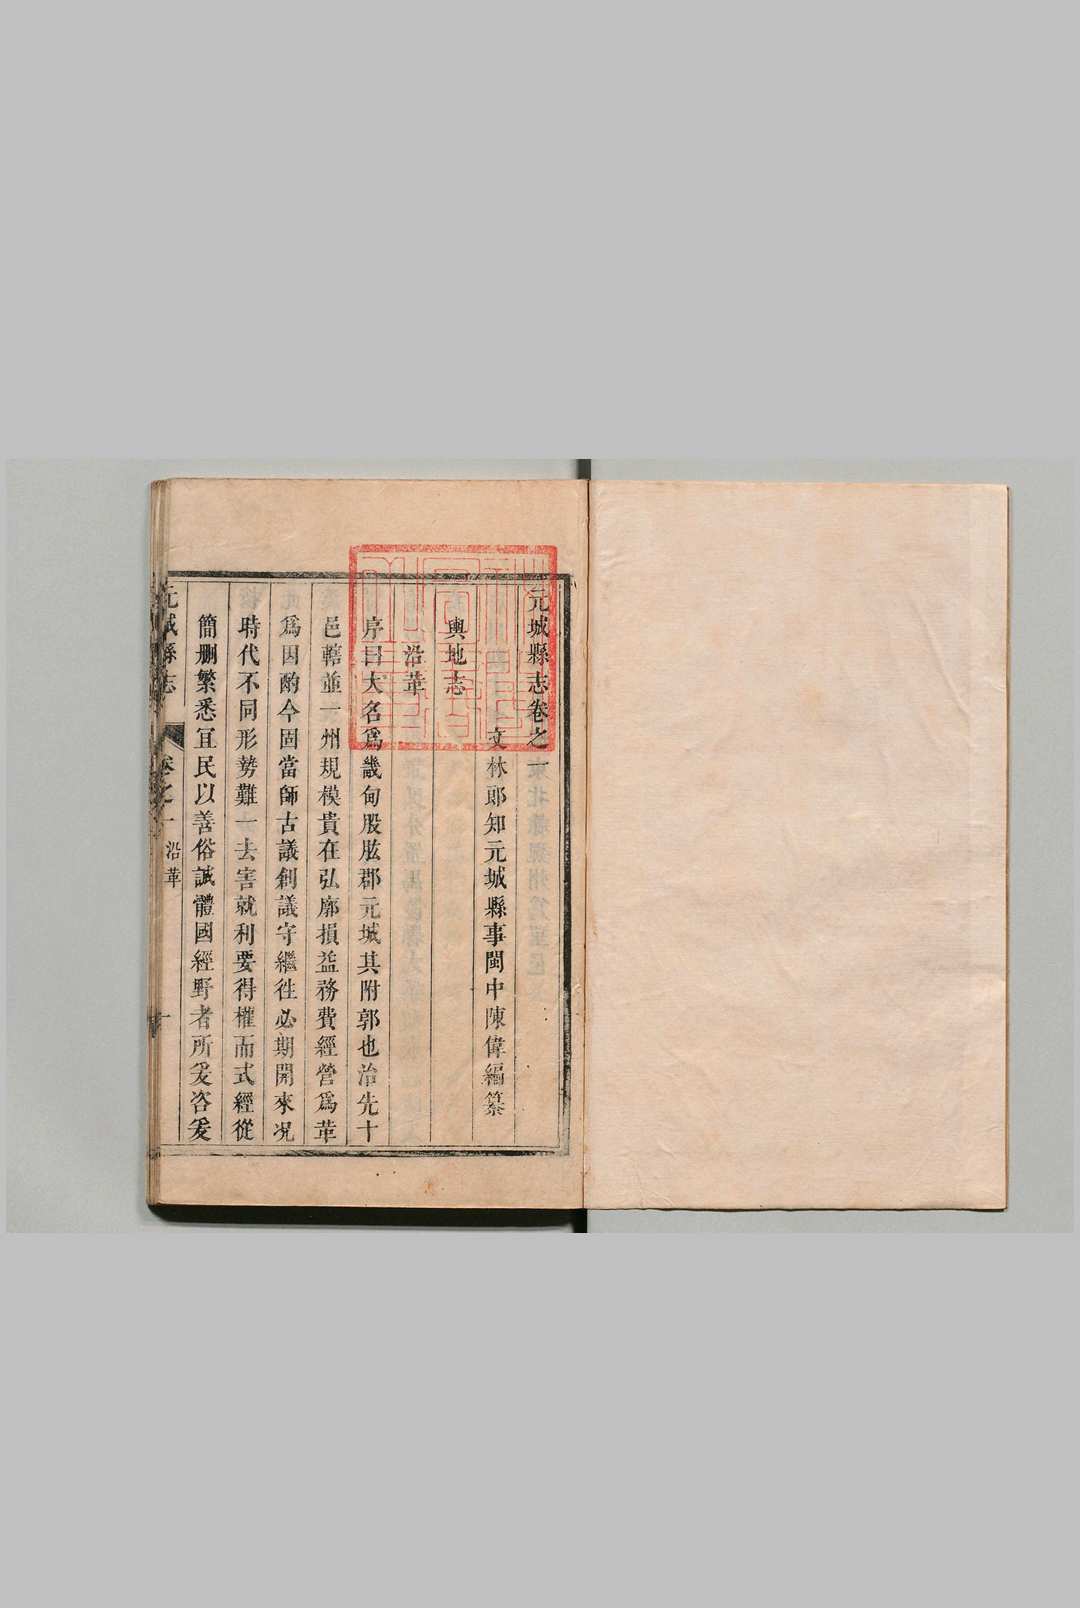 元城縣志卷之一
文林郎知元城縣事閩中陳偉編纂
輿地志
沿革
序曰大名爲畿甸股肱郡元城其附郭也治先十
邑轄並一州規模貴在弘廓損益務費經營爲革
爲因酌今固當師古議創議守繼徃必期開來况
時代不同形勢難一去害就利要得權而式經從
簡刪繁悉宜民以善俗誠體國經野者所爰咨爰
元城縣志 卷之一 沿革 一